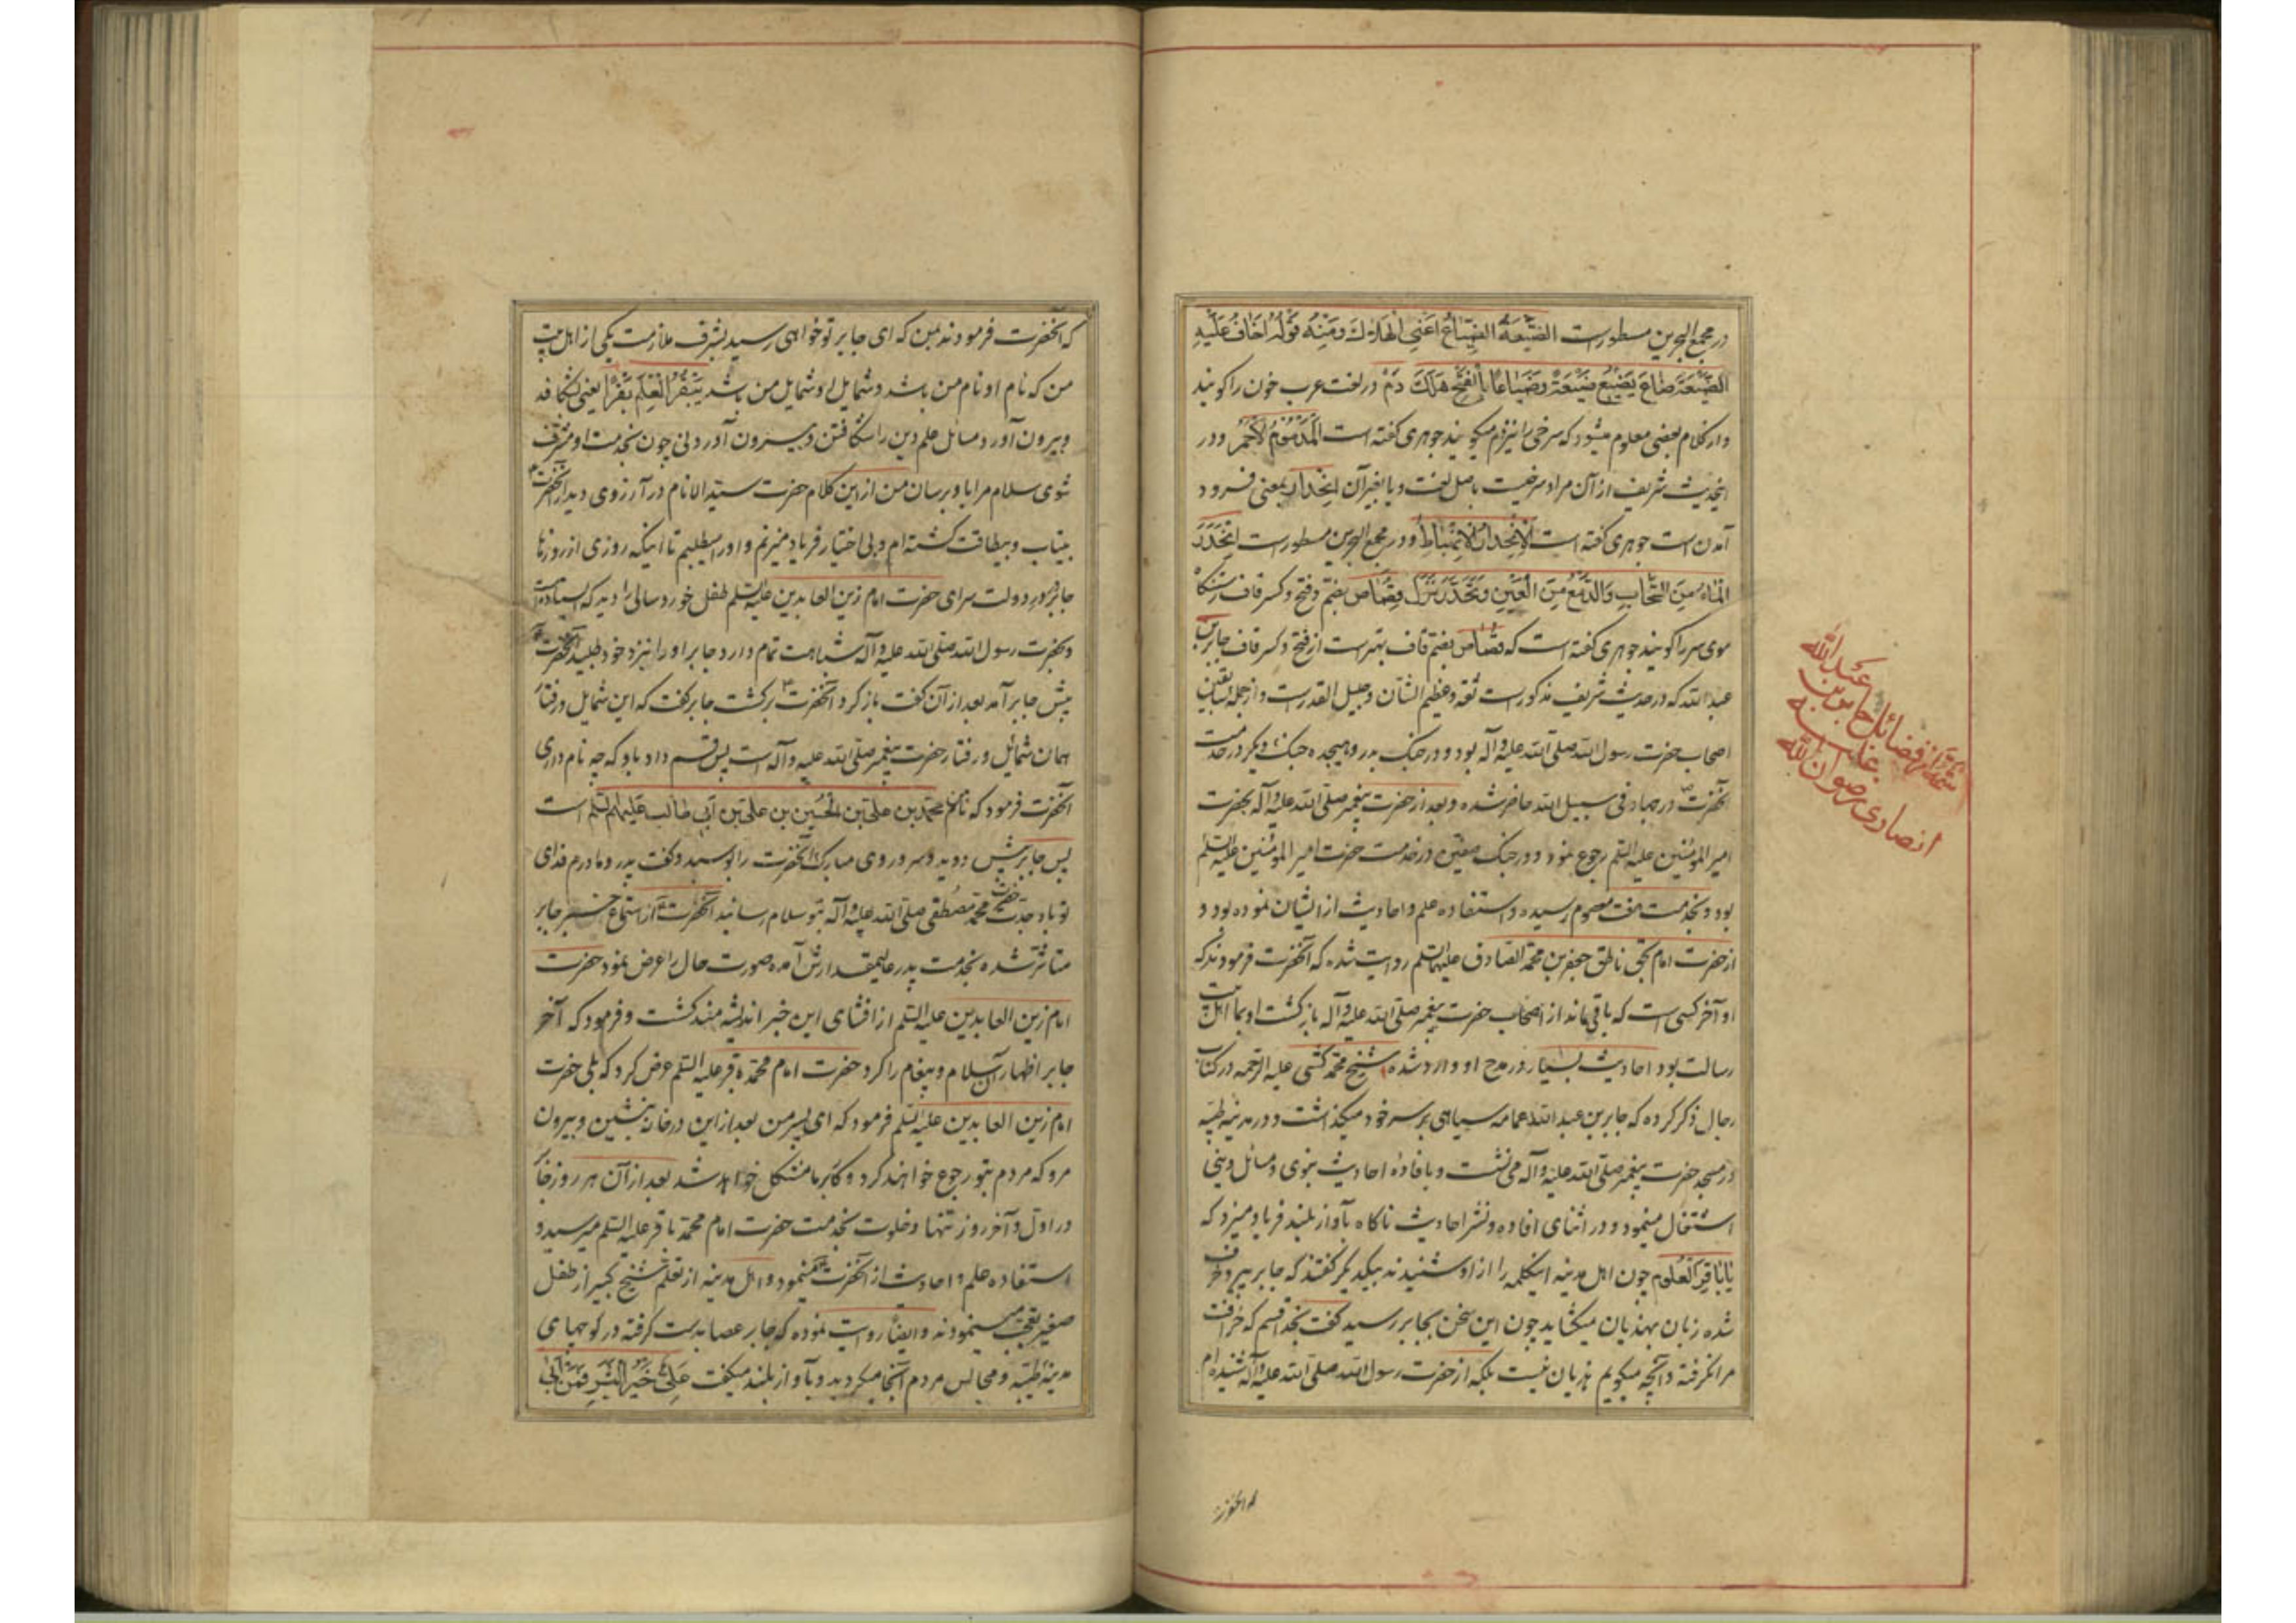 در مجمع البحرین مسطورست الضَّیْعَةُ الضِّیَاعُ اعنی الهلاك وَمِنْهُ قَوْلُهُ اَخَافُ عَلَیْهِ
الضَّیْعَةَ ضَاعَ یَضِیْعُ ضَیْعَةً وَضَیَاعًا بِالْفَتْحِ هَلَكَ دَمْ در لغت عرب خون را کویند
واز کلام بعضی معلوم میشود که سرخی را نیز دم میکویند جوهری کفته است الْمُدَمُّوْمُ الْاَحْمَرُ ودر
اینحدیث شریف از آن مراد سرخیست باصل لغت ویا بغیر آن اِنْحِدَار بمعنی فرود
آمدن است جوهری کفته است اَلْاِنْحِدَارُ الْاِنْهِبَاطُ ودر مجمع البحرین مسطورست اِنْحَدَرَ
الْمَاءُ مِنَ السَّحَابِ وَالدَّمْعُ مِنَ الْعَیْنِ وَتَحَدَّرَ نَزَلَ قصاص بضم وفتح وکسر قاف رستنکاه
موی سر را کویند جوهری کفته است که قصاص بضم قاف بهتر است از فتح وکسر قاف جابر بن
عبدالله که در حدیث شریف مذکور است ثقه وعظیم الشان وجلیل القدرست واز جمله سابقین
اصحاب حضرت رسول الله صلی الله علیه وآله بود ودر جنک بدر وهیجده جنك دیکر در خدمت
آنحضرت در جهاد فی سبیل الله حاضر شده وبعد از حضرت پیغمبر صلی الله علیه وآله بحضرت
امیر المؤمنین علیه السلم رجوع نمود ودر جنک صفین در خدمت حضرت امیر المؤمنین علیه السلم
بود وبخدمت هفت معصوم رسیده واستفاده علم واحادیث از ایشان نموده بود و
از حضرت امام بحق ناطق جعفر بن محمد الصادق علیهما السلم روایت شده که آنحضرت فرمودند که
او آخر کسی است که باقی ماند از اصحاب حضرت پیغمبر صلی الله علیه وآله بازکشت او بما اهل بیت
رسالت بود احادیث بسیار در مدح او وارد شده شیخ محمد کشی علیه الرحمه در کتاب
رجال ذکر کرده که جابر بن عبدالله عمامه سیاهی بر سر خود میکذاشت ودر مدینه طیبه
در مسجد حضرت پیغمبر صلی الله علیه وآله می نشست وبافاده احادیث نبوی ومسائل دینی
اشتغال مینمود ودر اثنای افاده ونشر احادیث ناکاه بآواز بلند فریاد میزد که
یَا بَاقِرَ الْعُلُوْم چون اهل مدینه اینکلمه را از او شنیدند بیکدیکر کفتند که جابر پیر وخرف
شده زبان بهذیان میکشاید چون این سخن بجابر رسید کفت بخدا قسم که خرافت
مرا نکرفته وآنچه میکویم هذیان نیست بلکه از حضرت رسول الله صلی الله علیه وآله شنیده ام
که آنحضرت
شمه از فضائل جابر بن
عبدالله
انصاری رضوان الله
علیه
که آنحضرت فرمودند بمن که ای جابر تو خواهی رسید بشرف ملازمت یکی از اهل بیت
من که نام او نام من باشد وشمایل او شمایل من باشد یَبْقُرُ الْعِلْمَ بَقْرًا یعنی بشکافد
وبیرون آورد مسائل علم دین را شکافتن وبیرون آوردنی چون بخدمت او مشرف
شوی سلام مرا باو برسان من از این کلام حضرت سید الانام در آرزوی دیدار آنحضرت
بیتاب وبیطاقت کشته ام وبی اختیار فریاد میزنم واورا میطلبم تا اینکه روزی از روزها
جابر در در دولت سرای حضرت امام زین العابدین علیه السلم طفل خورد سالی را دید که ایستاده است
وبحضرت رسول الله صلی الله علیه وآله شباهت تمام دارد جابر او را نیز د خود طلبید آنحضرت
پیش جابر آمد بعد از آن کفت باز کرد آنحضرت برکشت جابر کفت که این شمایل ورفتار
همان شمائل ورفتار حضرت پیغمبر صلی الله علیه وآله است پس قسم داد باو که چه نام داری
آنحضرت فرمود که نامم محمد بن علی بن الحسین بن علی بن ابی طالب علیهم السلم است
پس جابر پیش دوید وسر وروی مبارك آنحضرت را بوسید وکفت پدر ومادرم فدای
تو باد جدت حضرت محمد مصطفی صلی الله علیه وآله بتو سلام رسانید آنحضرت از استماع خبر جابر
متاثر شده بخدمت پدر عالیمقدارش آمده صورت حال را عرض نمود حضرت
امام زین العابدین علیه السلم از افشای این خبر اندیشه مند کشت وفرمود که آخر
جابر اظهار آن سلام وپیغام را کرد حضرت امام محمد باقر علیه السلم عرض کرد که بلی حضرت
امام زین العابدین علیه السلم فرمود که ای پسر من بعد از این در خانه بنشین وبیرون
مرو که مردم بتو رجوع خواهند کرد وکار ما مشکل خواهد شد بعد از آن هر روز جابر
در اول وآخر روز تنها وخلوت بخدمت حضرت امام محمد باقر علیه السلم میرسید و
استفاده علم واحادیث از آنحضرت مینمود واهل مدینه از تعلم شیخ کبیر از طفل
صغیر تعجب مینمودند وایضًا روایت نموده که جابر عصا بدست کرفته در کوچهای
مدینه طیبه ومجالس مردم آنجا میکردید وبآواز بلند میکفت عَلِیٌّ خَیْرُ الْبَشَرِ فَمَنْ اَبٰی